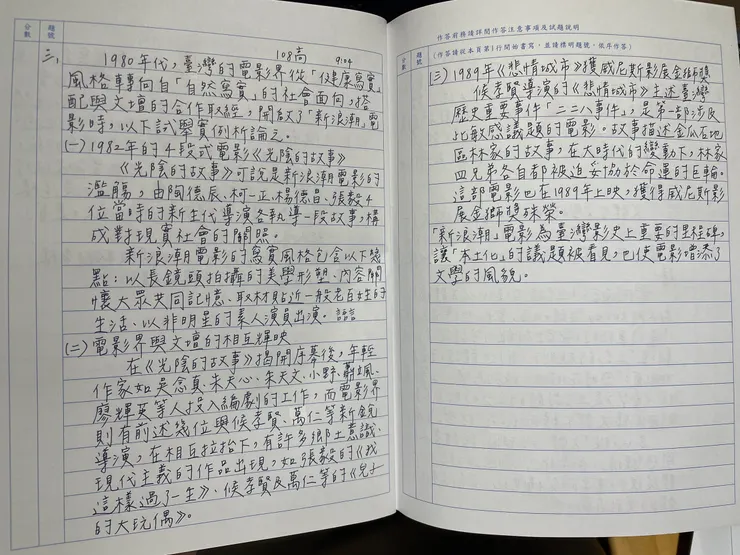 分數
題號
108高 9:04
三、1980年代，臺灣的電影界從「健康寫實」
風格轉向自「自然寫實」的社會面向，搭
配與文壇的合作取經，開啟了「新浪潮」電
影時，以下試舉實例析論之。
(一)1982年的4段式電影《光陰的故事》
《光陰的故事》可說是新浪潮電影的
濫觴，由陶德辰、柯一正、楊德昌、張毅4
位當時的新生代導演各執導一段故事，構
成對現實社會的關照。
新浪潮電影的寫實風格包含以下幾
點：以長鏡頭拍攝的美學形塑、內容關
懷大眾共同記憶、取材貼近一般老百姓的
生活、以非明星的素人演員出演。
(二)電影界與文壇的相互輝映
在《光陰的故事》揭開序幕後，年輕
作家如吳念真、朱天心、朱天文、小野、蕭颯、
廖輝英等人投入編劇的工作，而電影界
則有前述幾位與候孝賢、萬仁等新銳
導演，在相互拉抬下，有許多鄉土意識、
現代主義的作品出現，如張毅的《我
這樣過了一生》、候孝賢及萬仁等的《兒子
的大玩偶》。
作答前務請詳閱作答注意事項及試題說明
分數
題號
(作答請從本頁第1行開始書寫，並請標明題號，依序作答)
(三)1989年《悲情城市》獲威尼斯影展金獅獎
候孝賢導演的《悲情城市》主述臺灣
歷史重要事件「二二八事件」，是第一部涉及
此敏感議題的電影。故事描述金瓜石地
區林家的故事，在大時代的變動下，林家
四兄弟各自都被迫妥協於命運的巨輪。
這部電影也在1989年上映，獲得威尼斯影
展金獅獎殊榮。
「新浪潮」電影為臺灣影史上重要的里程碑，
讓「本土化」的議題被看見，也使電影增添了
文學的風貌。